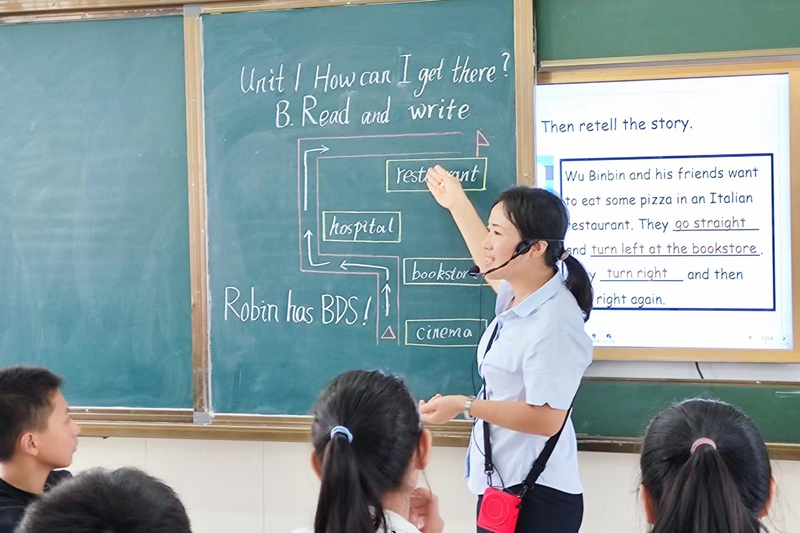 Unit 1 How can I get there?
B. Read and write
hospital
Robin has BDS!
cinema
Then retell the story.
Wu Binbin and his friends want
to eat some pizza in an Italian
restaurant. They go straight
and turn left at the bookstore.
turn right and then
right again.